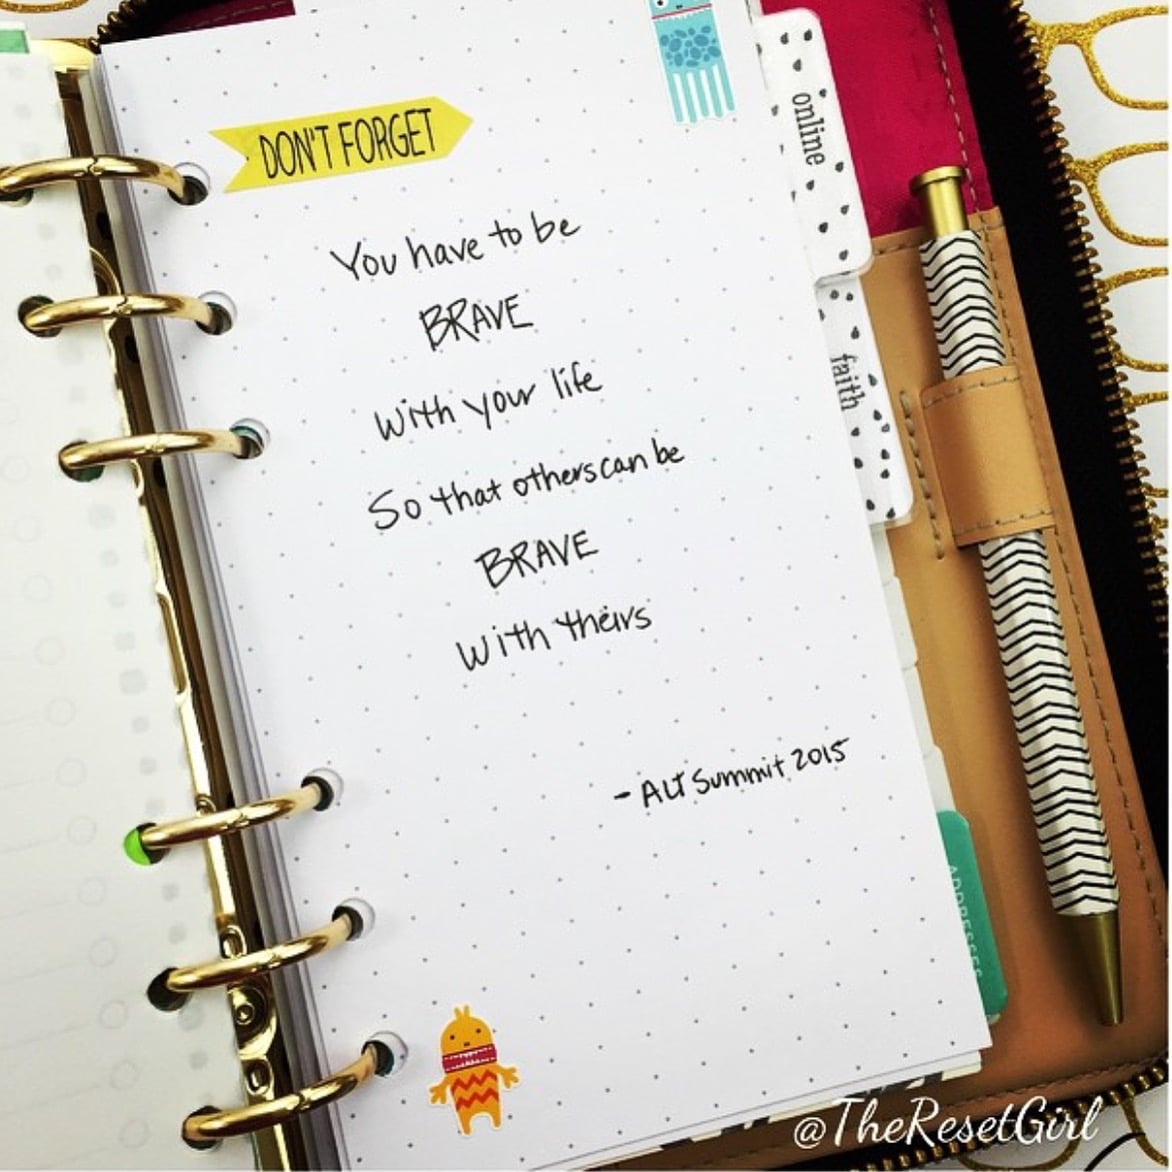 DON'T FORGET
You have to be
BRAVE
with your life
So that others can be
BRAVE
with theirs
- ALT Summit 2015
online
faith
ADDRESSES
@TheResetGirl